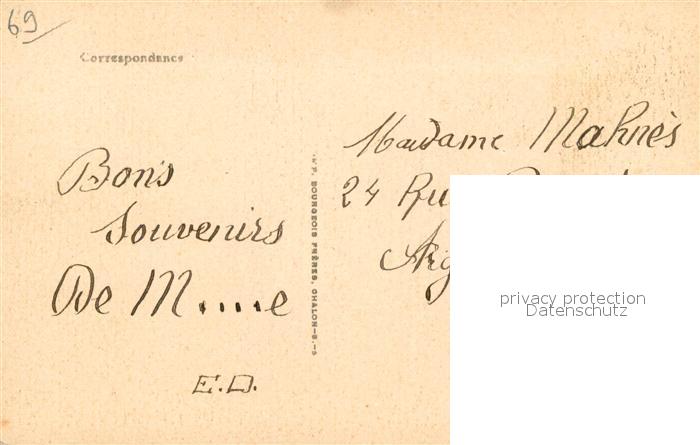 69
Correspondance
Bons
Souvenirs
De M....e
E.D.
BOURGEOIS FRÈRES, CHALON-S.-S
Madame Mahnès
24
privacy protection
Datenschutz